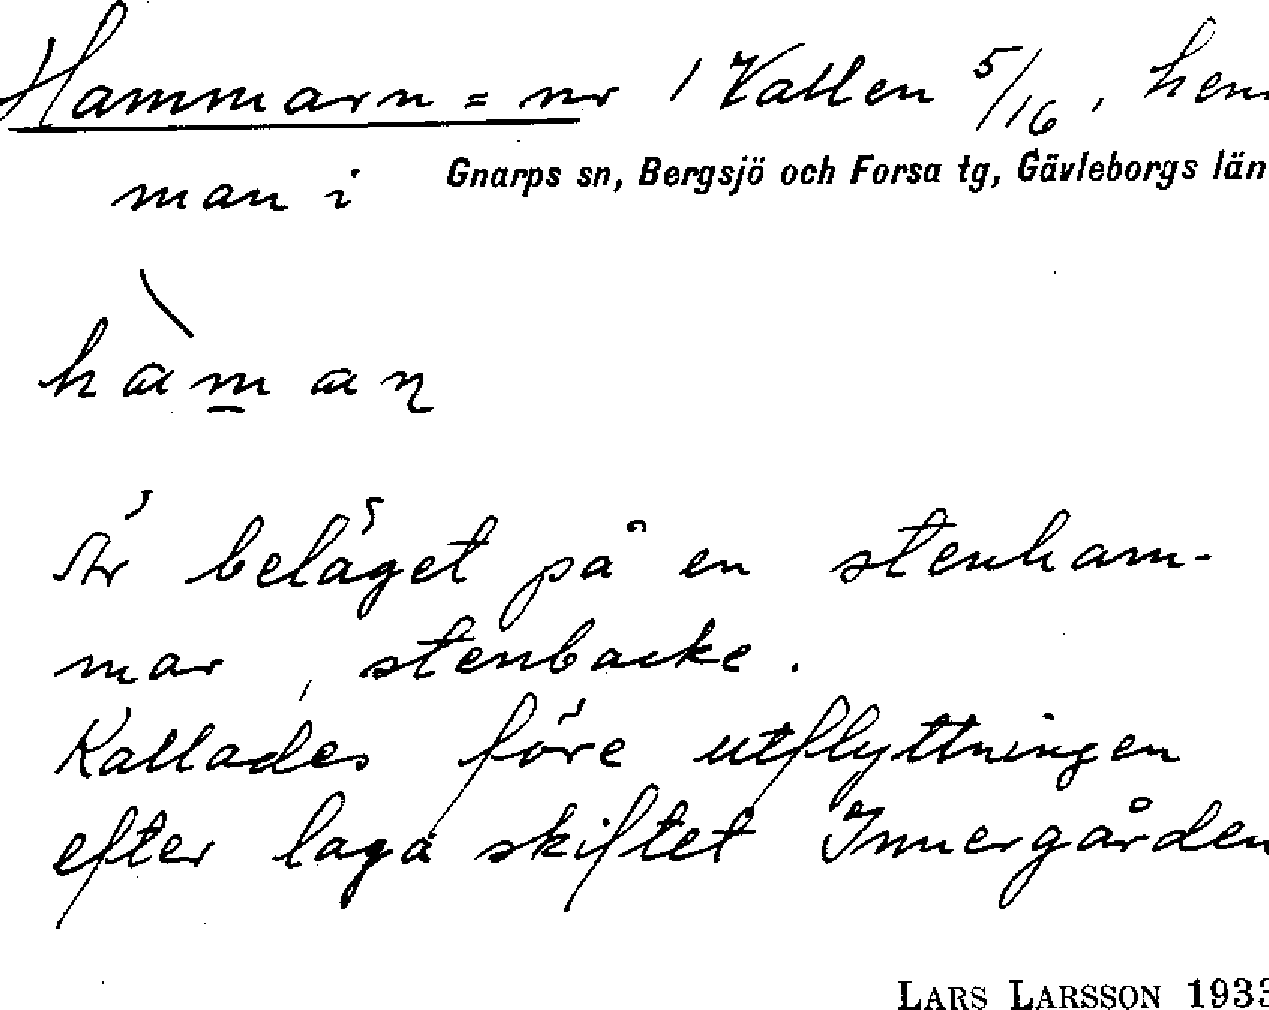 Hammarn = nr 1 Vallen 5/16, hem
man i Gnarps sn, Bergsjö och Forsa tg, Gävleborgs län
hàman
Är beläget på en stenham-
mar, stenbacke.
Kallades före utflyttningen
efter laga skiftet Innergården
LARS LARSSON 1933